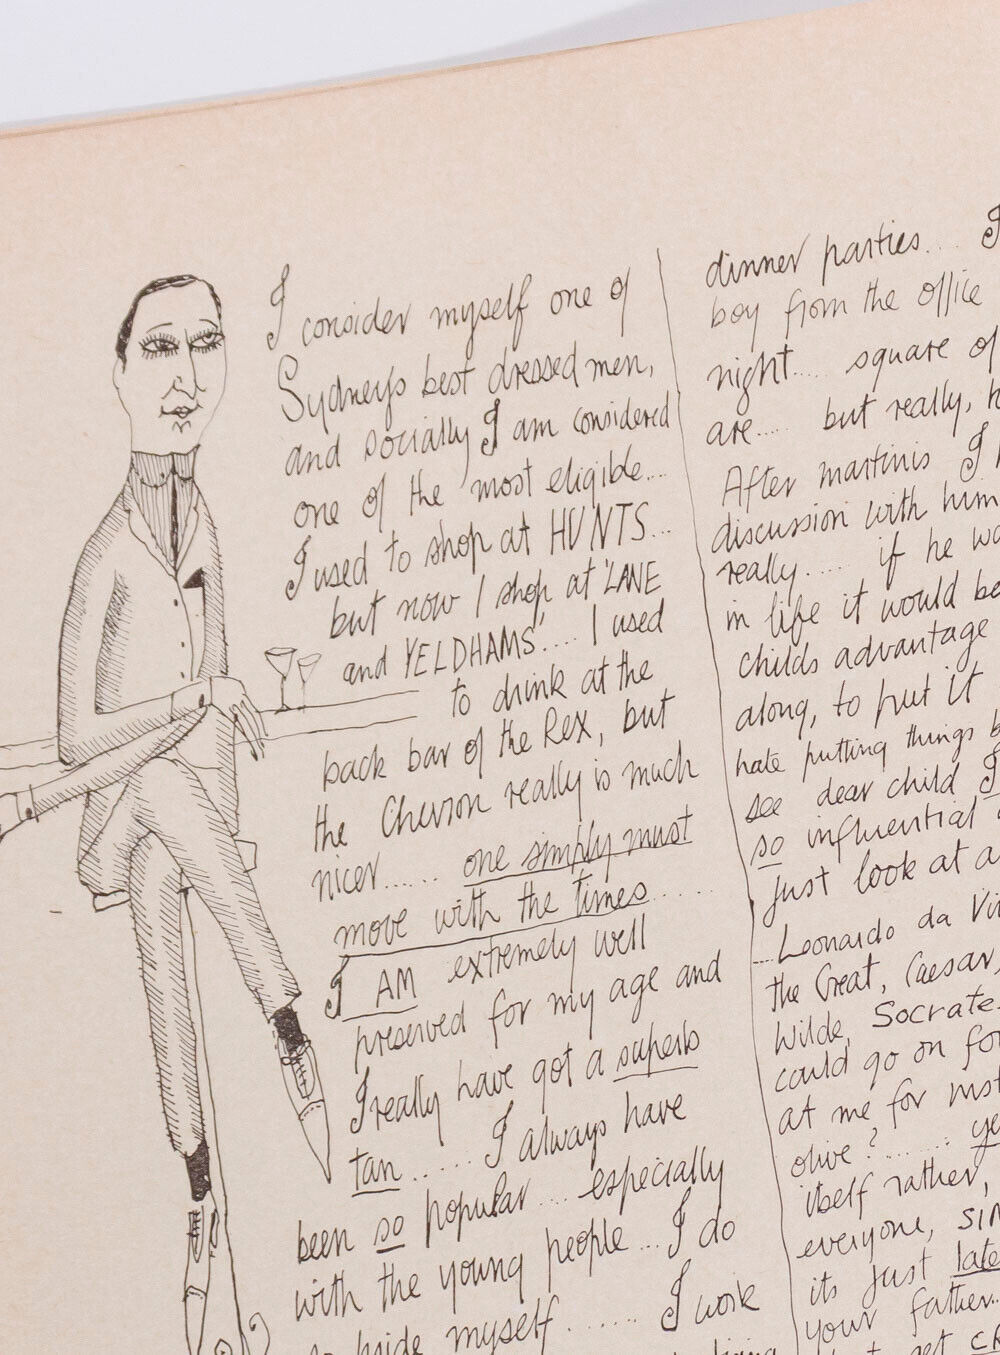 I consider myself one of
Sydneys best dressed men,
and socially I am considered
one of the most eligible...
I used to shop at HUNTS...
but now I shop at 'LANE
and YELDHAMS'.... I used
to drink at the
back bar of the Rex, but
the Chevron really is much
nicer...... one simply must
move with the times......
I AM extremely well
preserved for my age and
I really have got a superb
tan...... I always have
been so popular... especially
with the young people... I do
myself...... I work
dinner parties.... I
boy from the office
night.... square of
are.... but really,
After martinis I
discussion with him
really.... if he
in life it would be
childs advantage
along, to put it
hate putting things
see dear child I
so influential
just look at
...Leonardo da
the Great, Caesar,
Wilde,
could go on
at me for
olive?.......
itself rather,
everyone,
its just
your father...
get